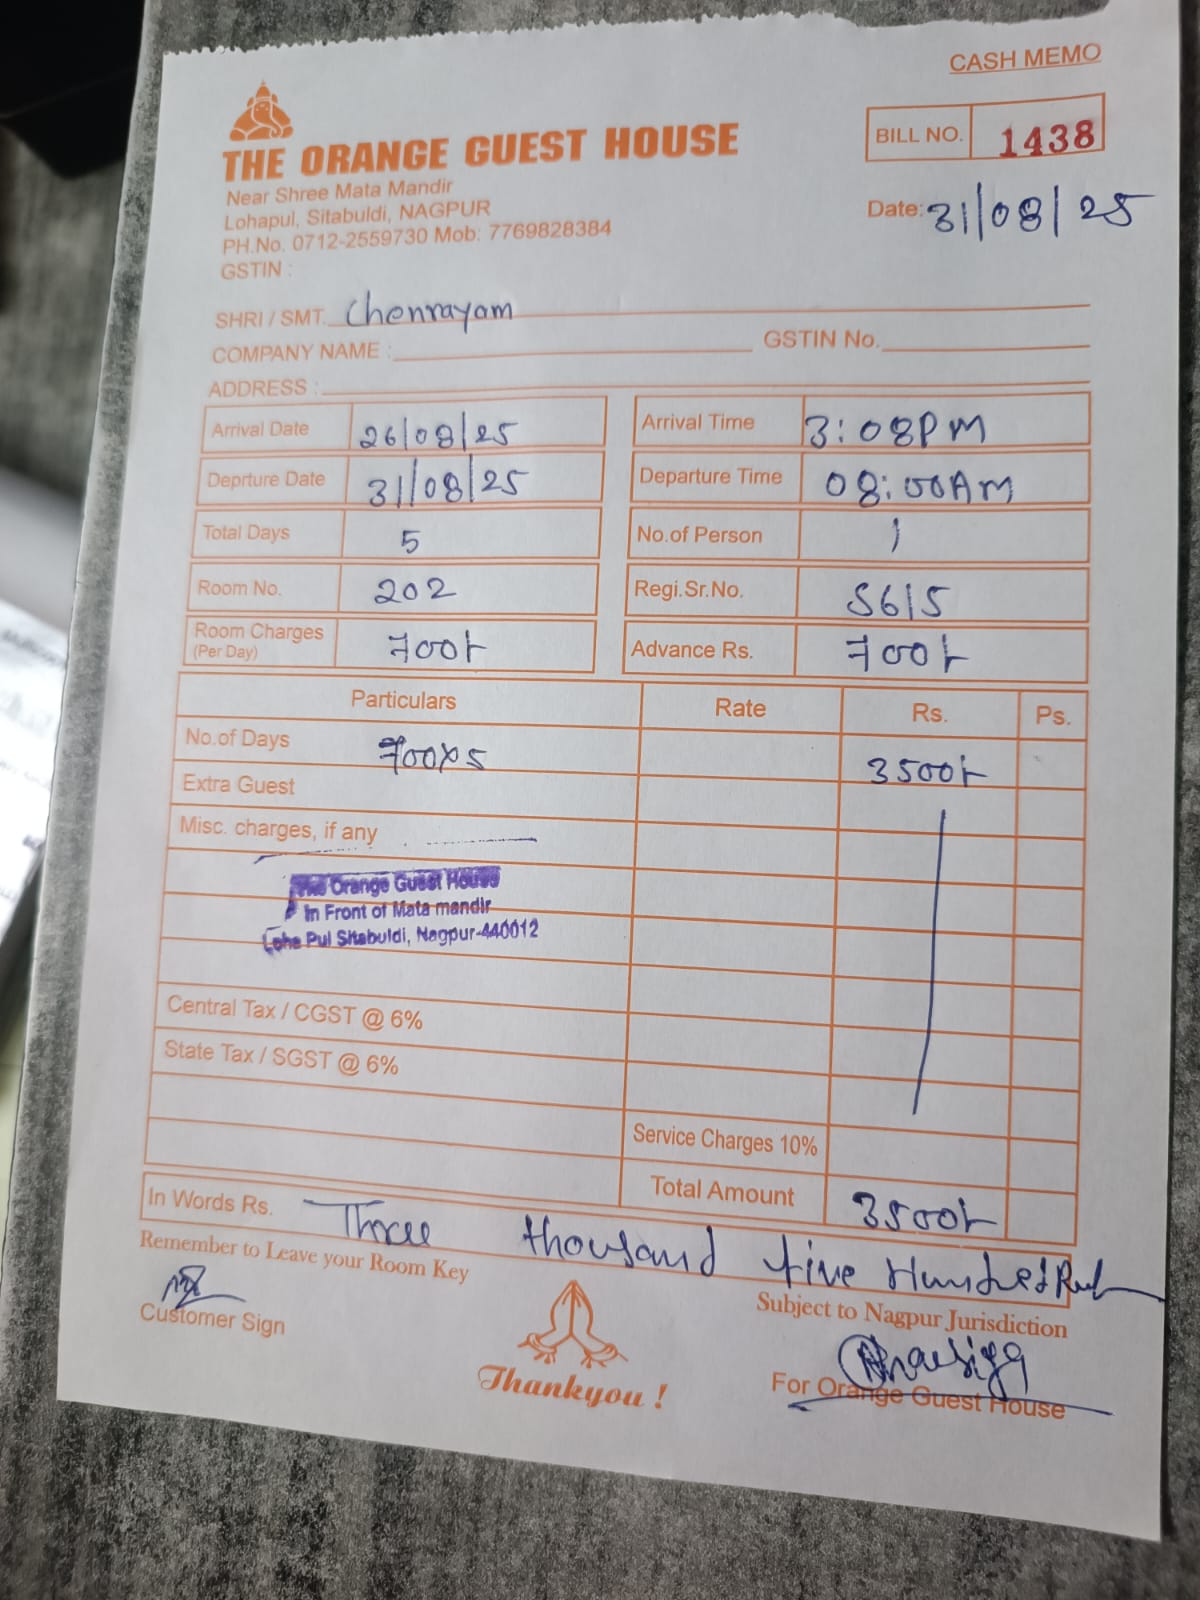 CASH MEMO
THE ORANGE GUEST HOUSE
Near Shree Mata Mandir
Lohapul, Sitabuldi, NAGPUR
PH.No. 0712-2559730 Mob: 7769828384
GSTIN :
BILL NO. 1438
Date: 31/08/25
SHRI / SMT. Chenrayam
COMPANY NAME : GSTIN No.
ADDRESS :
Arrival Date 26/08/25 Arrival Time 3:08PM
Deprture Date 31/08/25 Departure Time 08:00AM
Total Days 5 No.of Person 1
Room No. 202 Regi.Sr.No. 5615
Room Charges (Per Day) 700/- Advance Rs. 700/-
Particulars Rate Rs. Ps.
No.of Days 700x5 3500/-
Extra Guest
Misc. charges, if any
The Orange Guest House
In Front of Mata mandir
Loha Pul Sitabuldi, Nagpur-440012
Central Tax / CGST @ 6%
State Tax / SGST @ 6%
Service Charges 10%
Total Amount 3500/-
In Words Rs. Three thousand five Hundred
Remember to Leave your Room Key
Subject to Nagpur Jurisdiction
Customer Sign
Thankyou !
For Orange Guest House